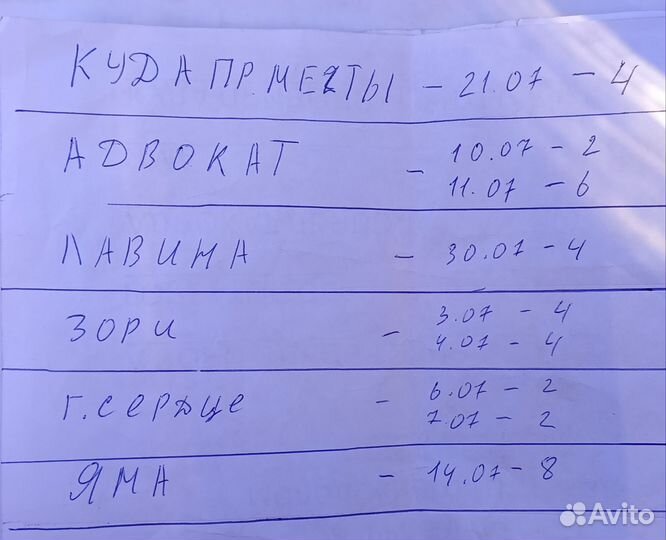 КУДА ПР. МЕЧТЫ - 21.07 - 4
АДВОКАТ - 10.07 - 2
11.07 - 6
ЛАВИНА - 30.07 - 4
ЗОРИ - 3.07 - 4
4.07 - 4
Г. СЕРДЦЕ - 6.07 - 2
7.07 - 2
ЯМА - 14.07 - 8
Avito